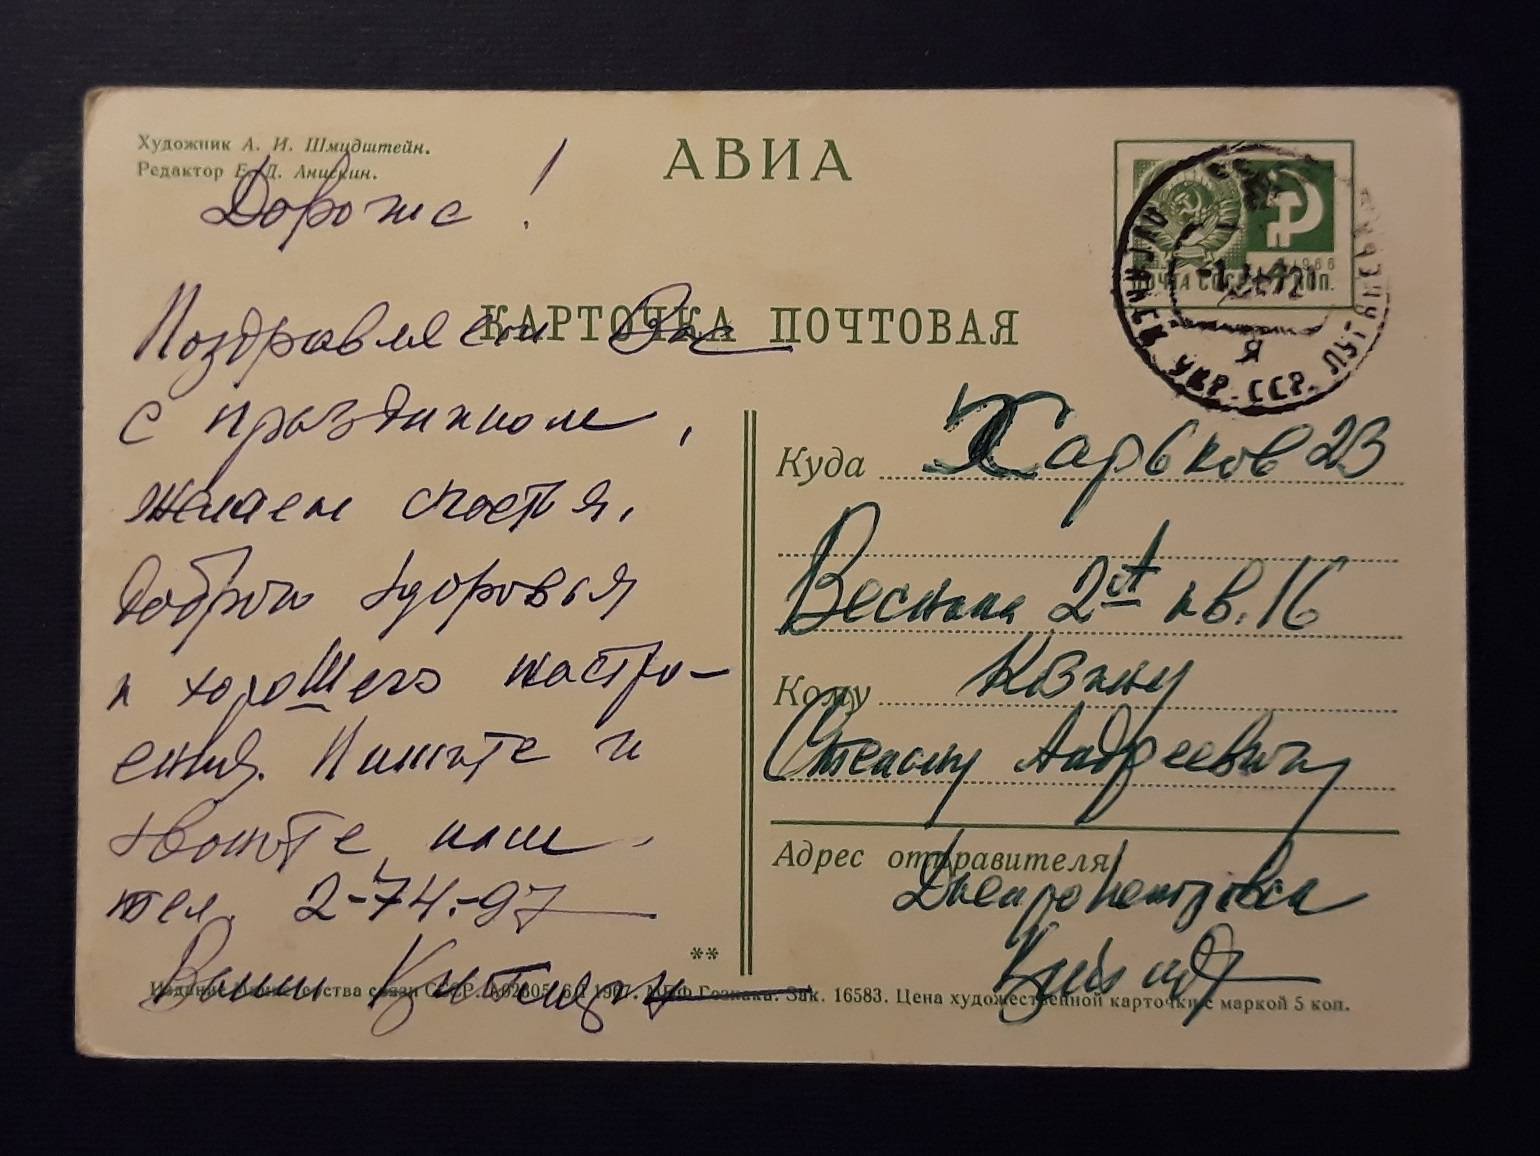 Художник А. И. Шмидштейн.
Редактор Е. Д. Анискин.
АВИА
КАРТОЧКА ПОЧТОВАЯ
1966
ПОЧТА СССР 4 КОП.
УКР. ССР.
Я
Дорогие !
Поздравляем Вас
с праздником,
желаем счастья,
доброго здоровья
и хорошего настро-
ения. Пишите и
звоните, наш
тел. 2-74-97
Ваши
Куда Харьков 23
Весніна 2 кв. 16
Кому
Степану Андреевичу
Адрес отправителя
Днепропетровск
**
Издание Министерства связи СССР. А02805. 1967. МПФ Гознака. Зак. 16583. Цена художественной карточки с маркой 5 коп.